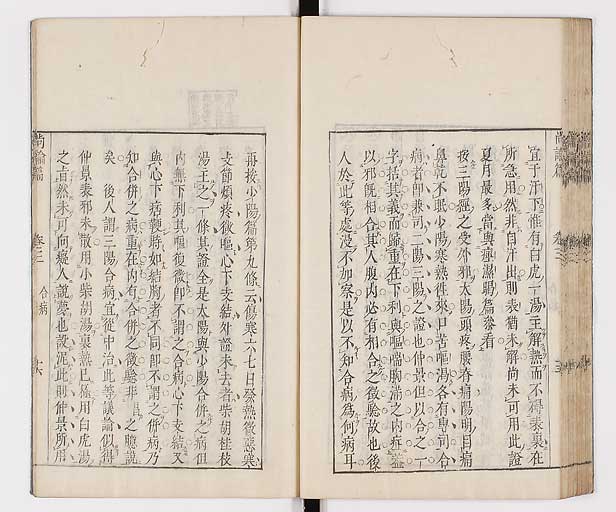 宜于汗下惟有白虎一湯主解熱而不碍表裏在
所急用然非自汗出則表猶未解尚未可用此證
夏月最多當與痙濕暍篇參看
按三陽經之受外邪太陽頭疼腰脊痛陽明目痛
鼻乾不眠少陽寒熱往來口苦嘔渴各有專司合
病者即兼司二陽三陽之證也仲景但以合之一
字括其義而歸重在下利與嘔喘胸滿之内症蓋
以邪既相合其人腹内必有相合之徵驗故也後
人於此等處漫不加察是以不知合病爲何病耳
尚論篇
卷三
再按少陽篇第九條云傷寒六七日發熱微惡寒
支節煩疼微嘔心下支結外證未去者柴胡桂枝
湯主之一條其證全是太陽與少陽合併之病但
内無下利其嘔復微即不謂之合病心下支結又
與心下痞鞕時如結胸者不同即不謂之併病乃
知合併之病重在内有合併之徵驗非
之瞻說
矣後人謂三陽合病宜從中治此等議論似得
仲景表邪未散用小柴胡湯裏熱已極用白虎湯
之旨然未可向癡人說夢也設泥此則仲景所用
尚論篇
卷三
合病
六